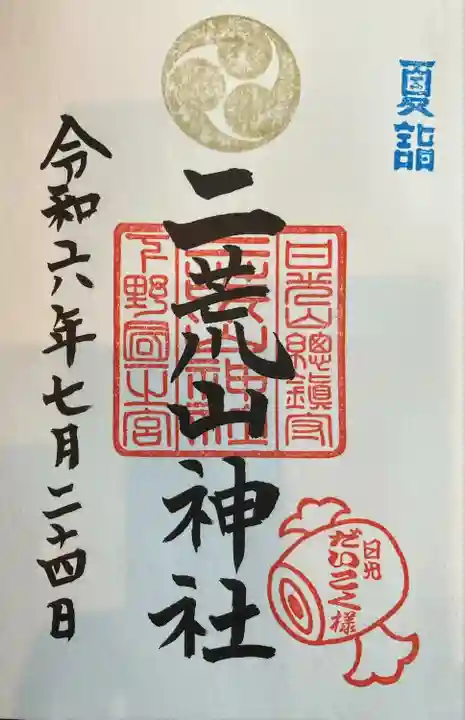 夏詣
日光山總鎮守
二荒山神社
下野國一之宮
二荒山神社
日光
だいこく様
令和六年七月二十四日